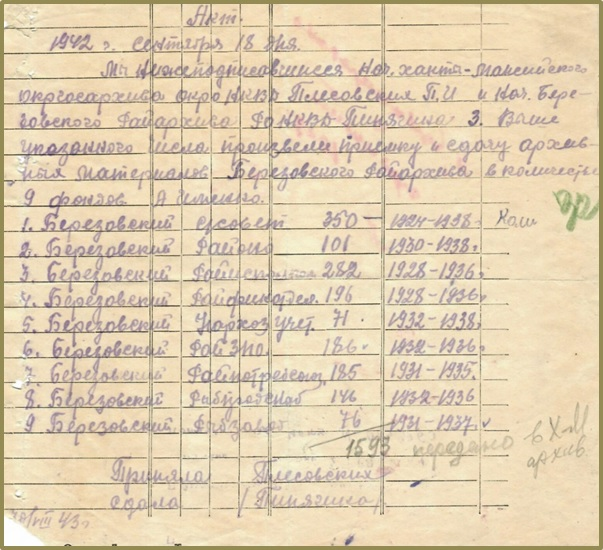 Акт.
1942 г. сентября 18 дня.
Мы нижеподписавшиеся Нач. ханты-мансийского
окргосархива окро НКВД Плесовских П.И и Нач. Бере-
зовского Райархива Ро НКВД Пинягина З. Выше
указанного числа произвели приемку и сдачу архив-
ных материалов Березовского Райархива в количестве
9 фондов А именно.
1. Березовский с/совет 350 — 1924-1938. Кош
2. Березовский Районо 101 1930-1938.
3. Березовский Райисполком 282 1928-1936.
4. Березовский Райфинотдел. 196 1928-1936.
5. Березовский Нархозучет. 71. 1932-1938.
6. Березовский РайЗО. 186. 1932-1936.
7. Березовский Райпотребсоюз 185 1931-1935.
8. Березовский 146 1932-1936
9 Березовский Рыбзавод 76 1931-1937.
1593 передано в Х-М
архив.
Приняла Плесовских
сдала /Пинягина/
VIII 43 г